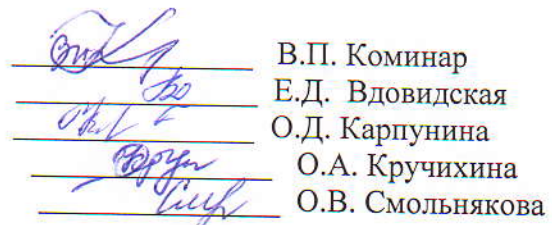 В.П. Коминар
Е.Д. Вдовидская
О.Д. Карпунина
О.А. Кручихина
О.В. Смольнякова